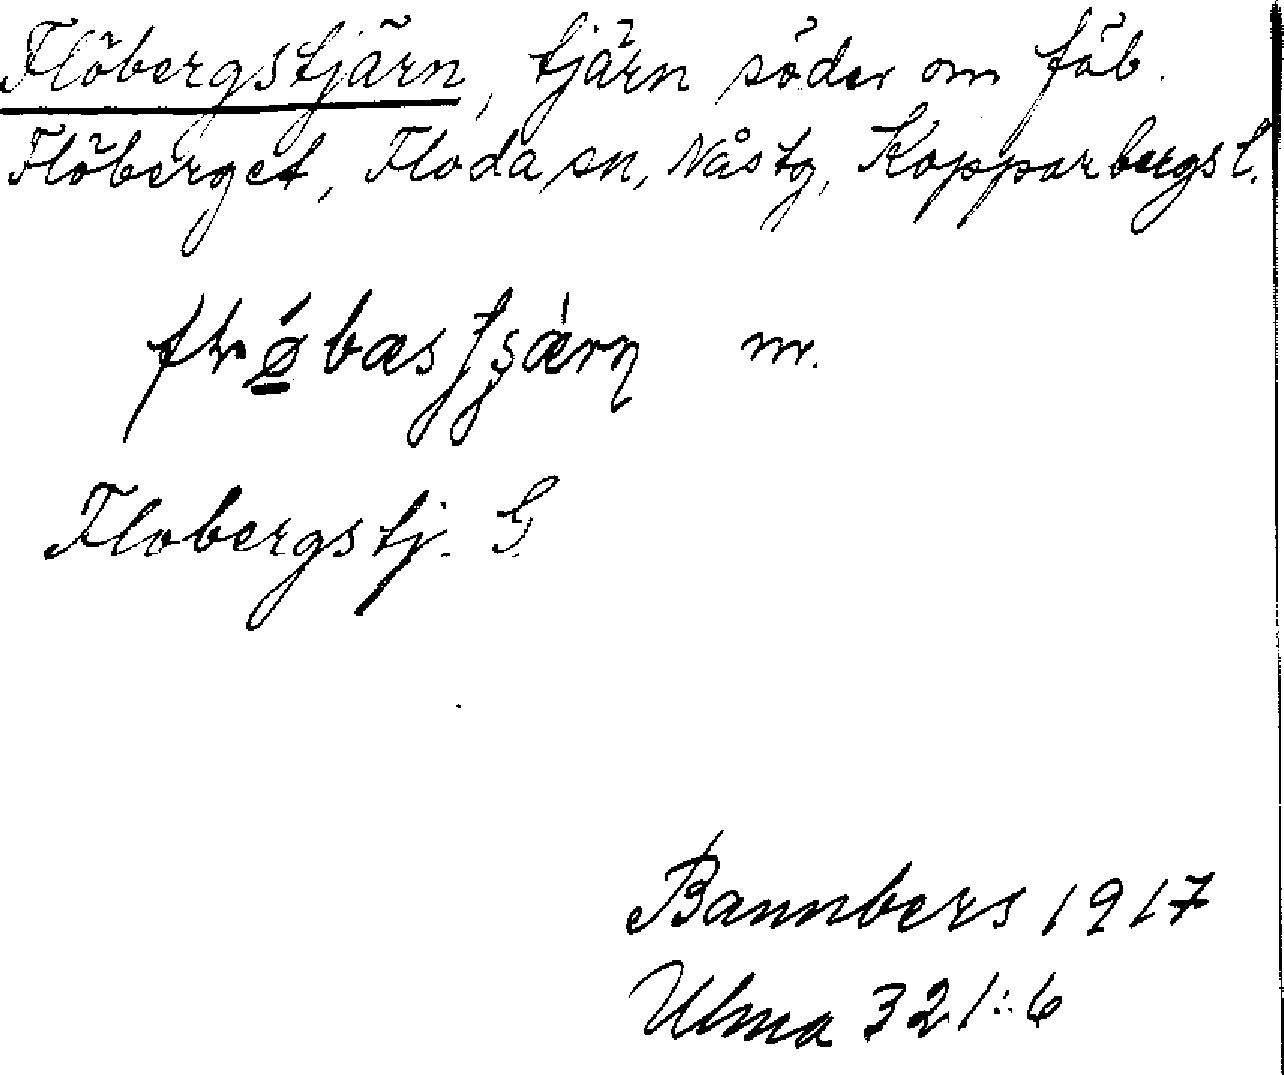 Flöbergstjärn, tjärn söder om fäb.
Flöberget, Floda sn, Nås tg, Kopparbergs l.
m.
Flobergstj. G
Bannbers 1917
Ulma 321:6